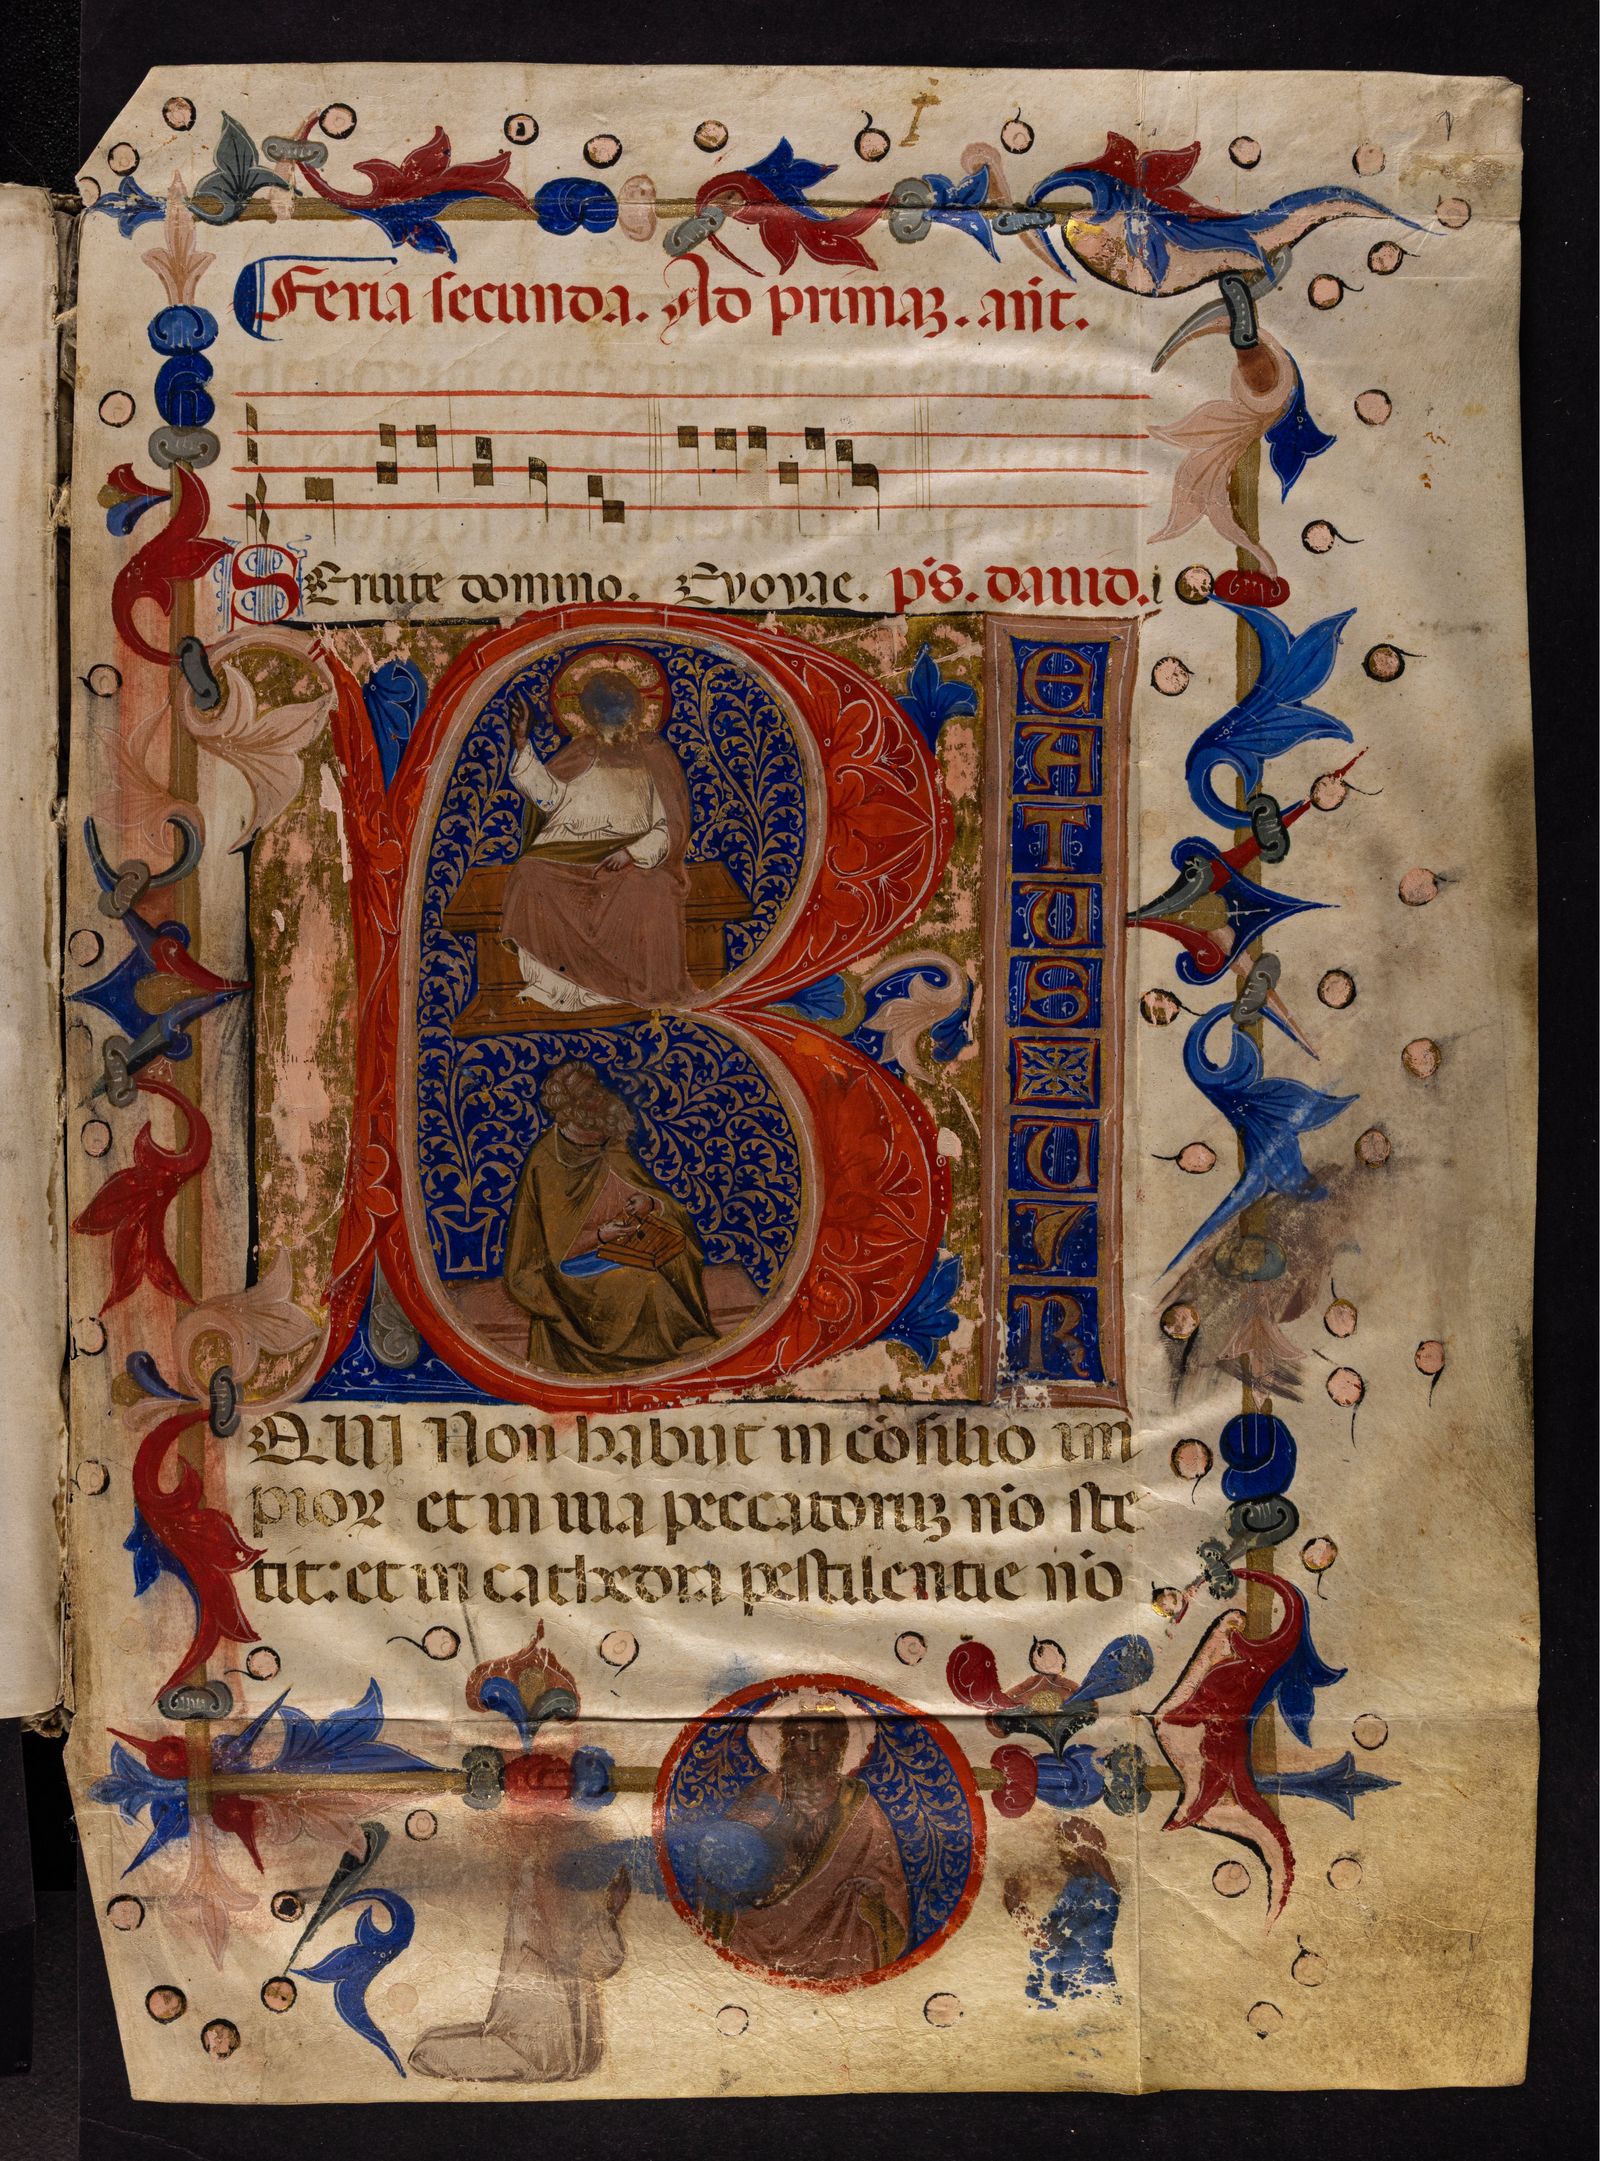 i
Feria secunda. Ad primaꝫ. ant̄.
SEruite domino. Evovae. ps̄. dauid. i
BEATUS UIR
QUI Non habiit in cōsilio im
pioꝝ et in uia peccatoruꝫ nō ste
tit: et in cathedra pestilentie nō